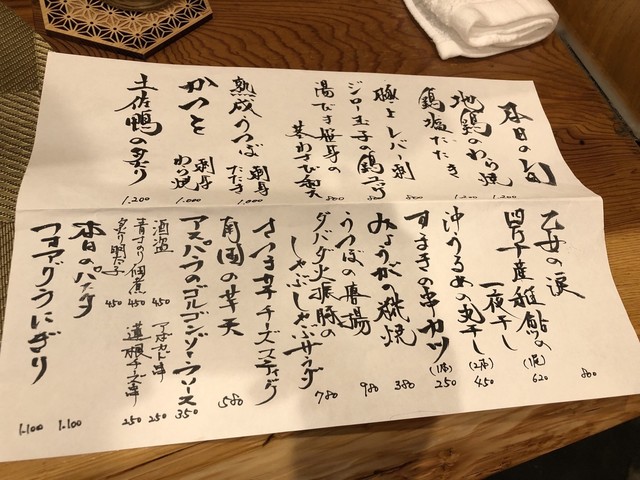 本日の旬
地鶏のわら焼
1.200
鶏塩だたき
1.200
極上レバー刺
800
ジロー玉子の鶏ユッケ
800
湯びき笹身の
茎わさび和え
800
熟成うつぼ
刺身
たたき
1.000
かつを
刺身
わら焼
1.000
土佐鴨の炙り
1.200
乙女の涙
800
四万十産稚鮎の
一夜干し
(1尾)
620
沖うるめの丸干し
(2本)
450
すまきの串カツ
(1本)
250
みょうがの梺焼
380
うつぼの唐揚
980
ダバダ火振豚の
しゃぶしゃぶサラダ
780
さつま芋チーズスティック
南国の芋天
580
アスパラのゴルゴンゾーラソース
350
酒盗
450
青さのり佃煮
450
炙り明太子
450
アボカド串
250
蓮根チーズ串
250
本日のパスタ
1.100
フォアグラにぎり
1.100